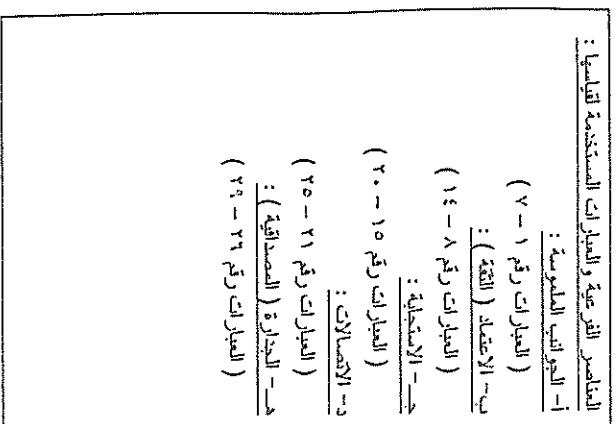 العناصر الفرعية والعبارات المستخدمة لقياسها :
أ- الجوانب الملموسة :
( العبارات رقم ١ – ٧ )
ب- الاعتماد ( الثقة ) :
( العبارات رقم ٨ – ١٤ )
جـ- الاستجابة :
( العبارات رقم ١٥ – ٢٠ )
د- الاتصالات :
( العبارات رقم ٢١ – ٢٥ )
هـ- الجدارة ( المصداقية ) :
( العبارات رقم ٢٦ – ٢٩ )